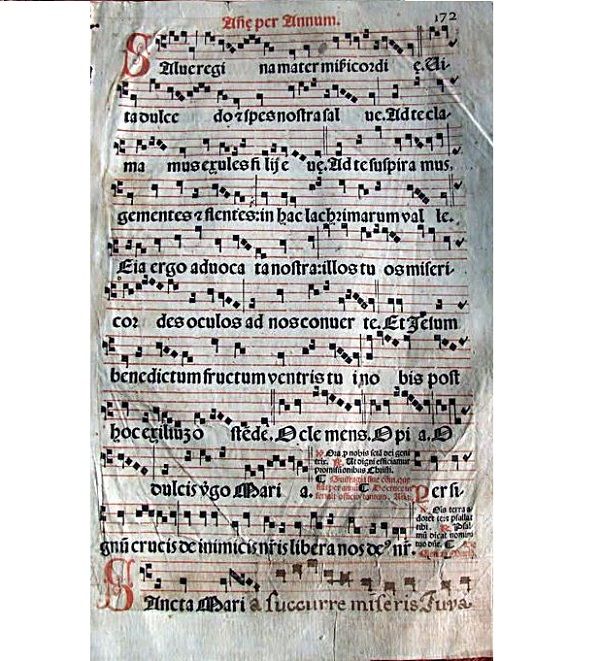 Añe per Annum.
172
SAlue regi na mater misericordi e. Ui-
ta dulce do ⁊ spes nostra sal ue. Ad te cla-
ma mus exules fi lij e ue. Ad te suspira mus,
gementes ⁊ flentes: in hac lachrimarum val le.
Eia ergo aduoca ta nostra: illos tu os miseri-
cor des oculos ad nos conuer te. Et Jesum
benedictum fructum ventris tu i no bis post
hoc exiliuʒ o stēde. O cle mens. O pi a. O
dulcis v̄go Mari a.
Ora p nobis
Ut digni efficiamur
promissionibus Christi.
Per si-
gnū crucis de inimicis nr̄is libera nos de⁹ nr̄.
Ois terra a
doret te ⁊ psallat
tibi.
SAncta Mari a succurre miseris Juva